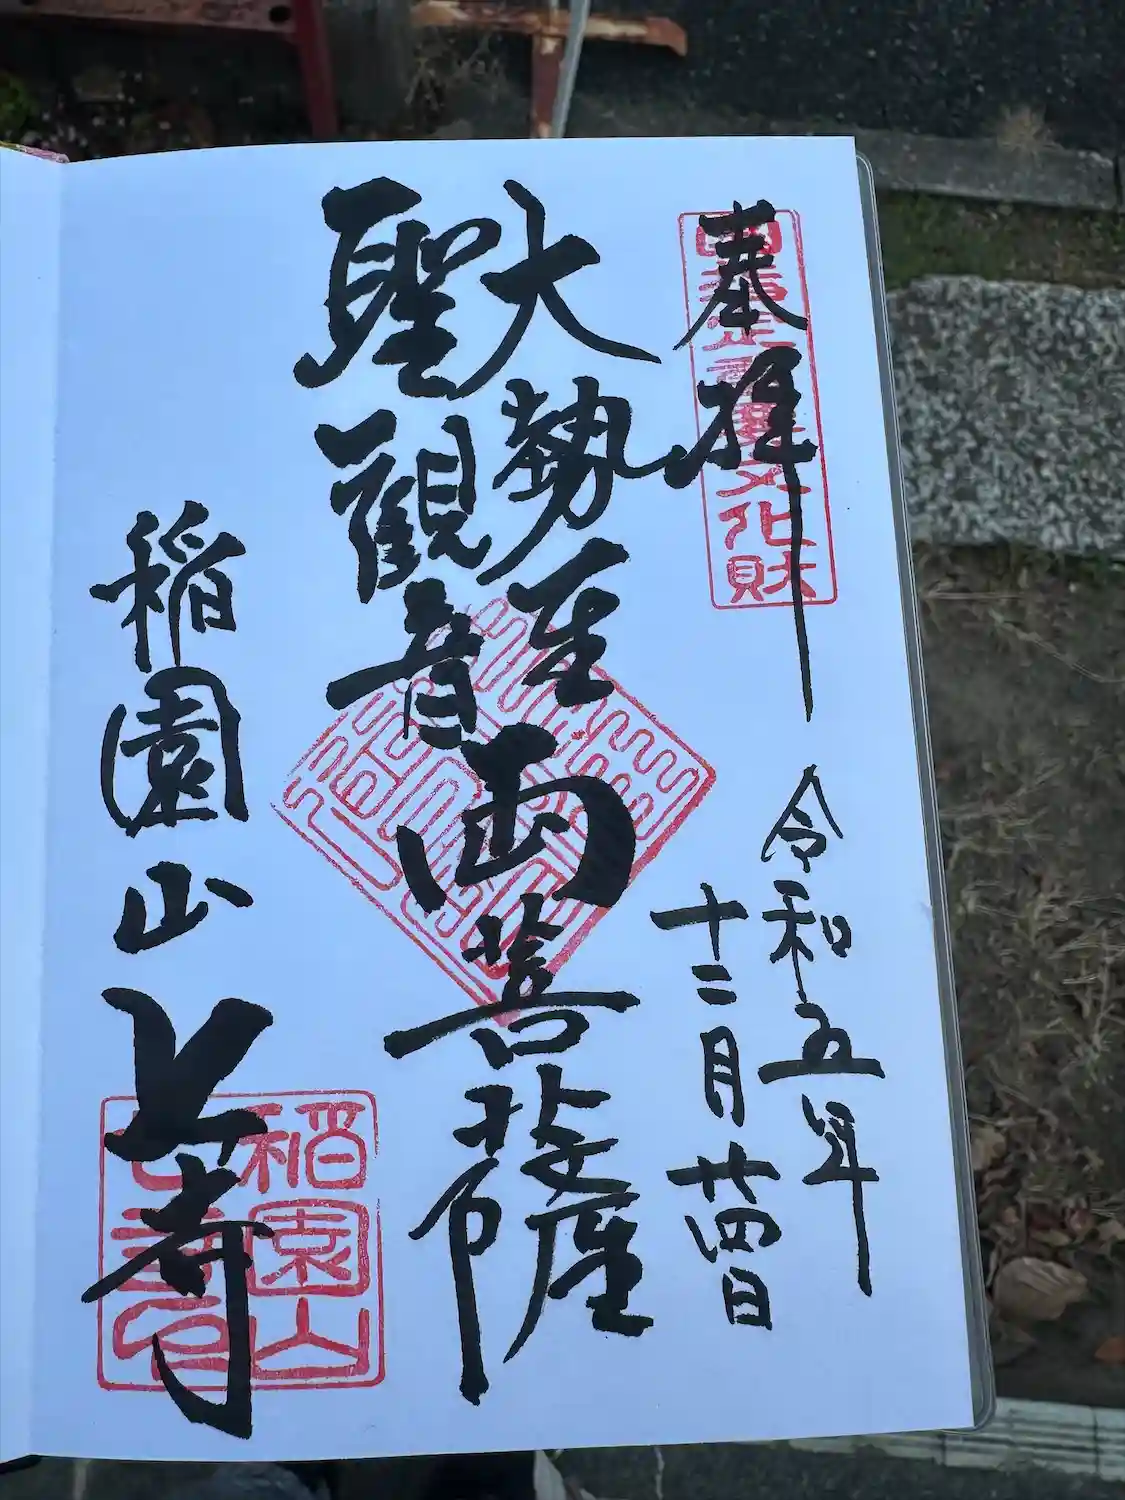 奉拝
国指定重要文化財
令和五年
十二月廿四日
大勢至
聖観音
両菩薩
稲園山
七寺
稲園山
七寺印